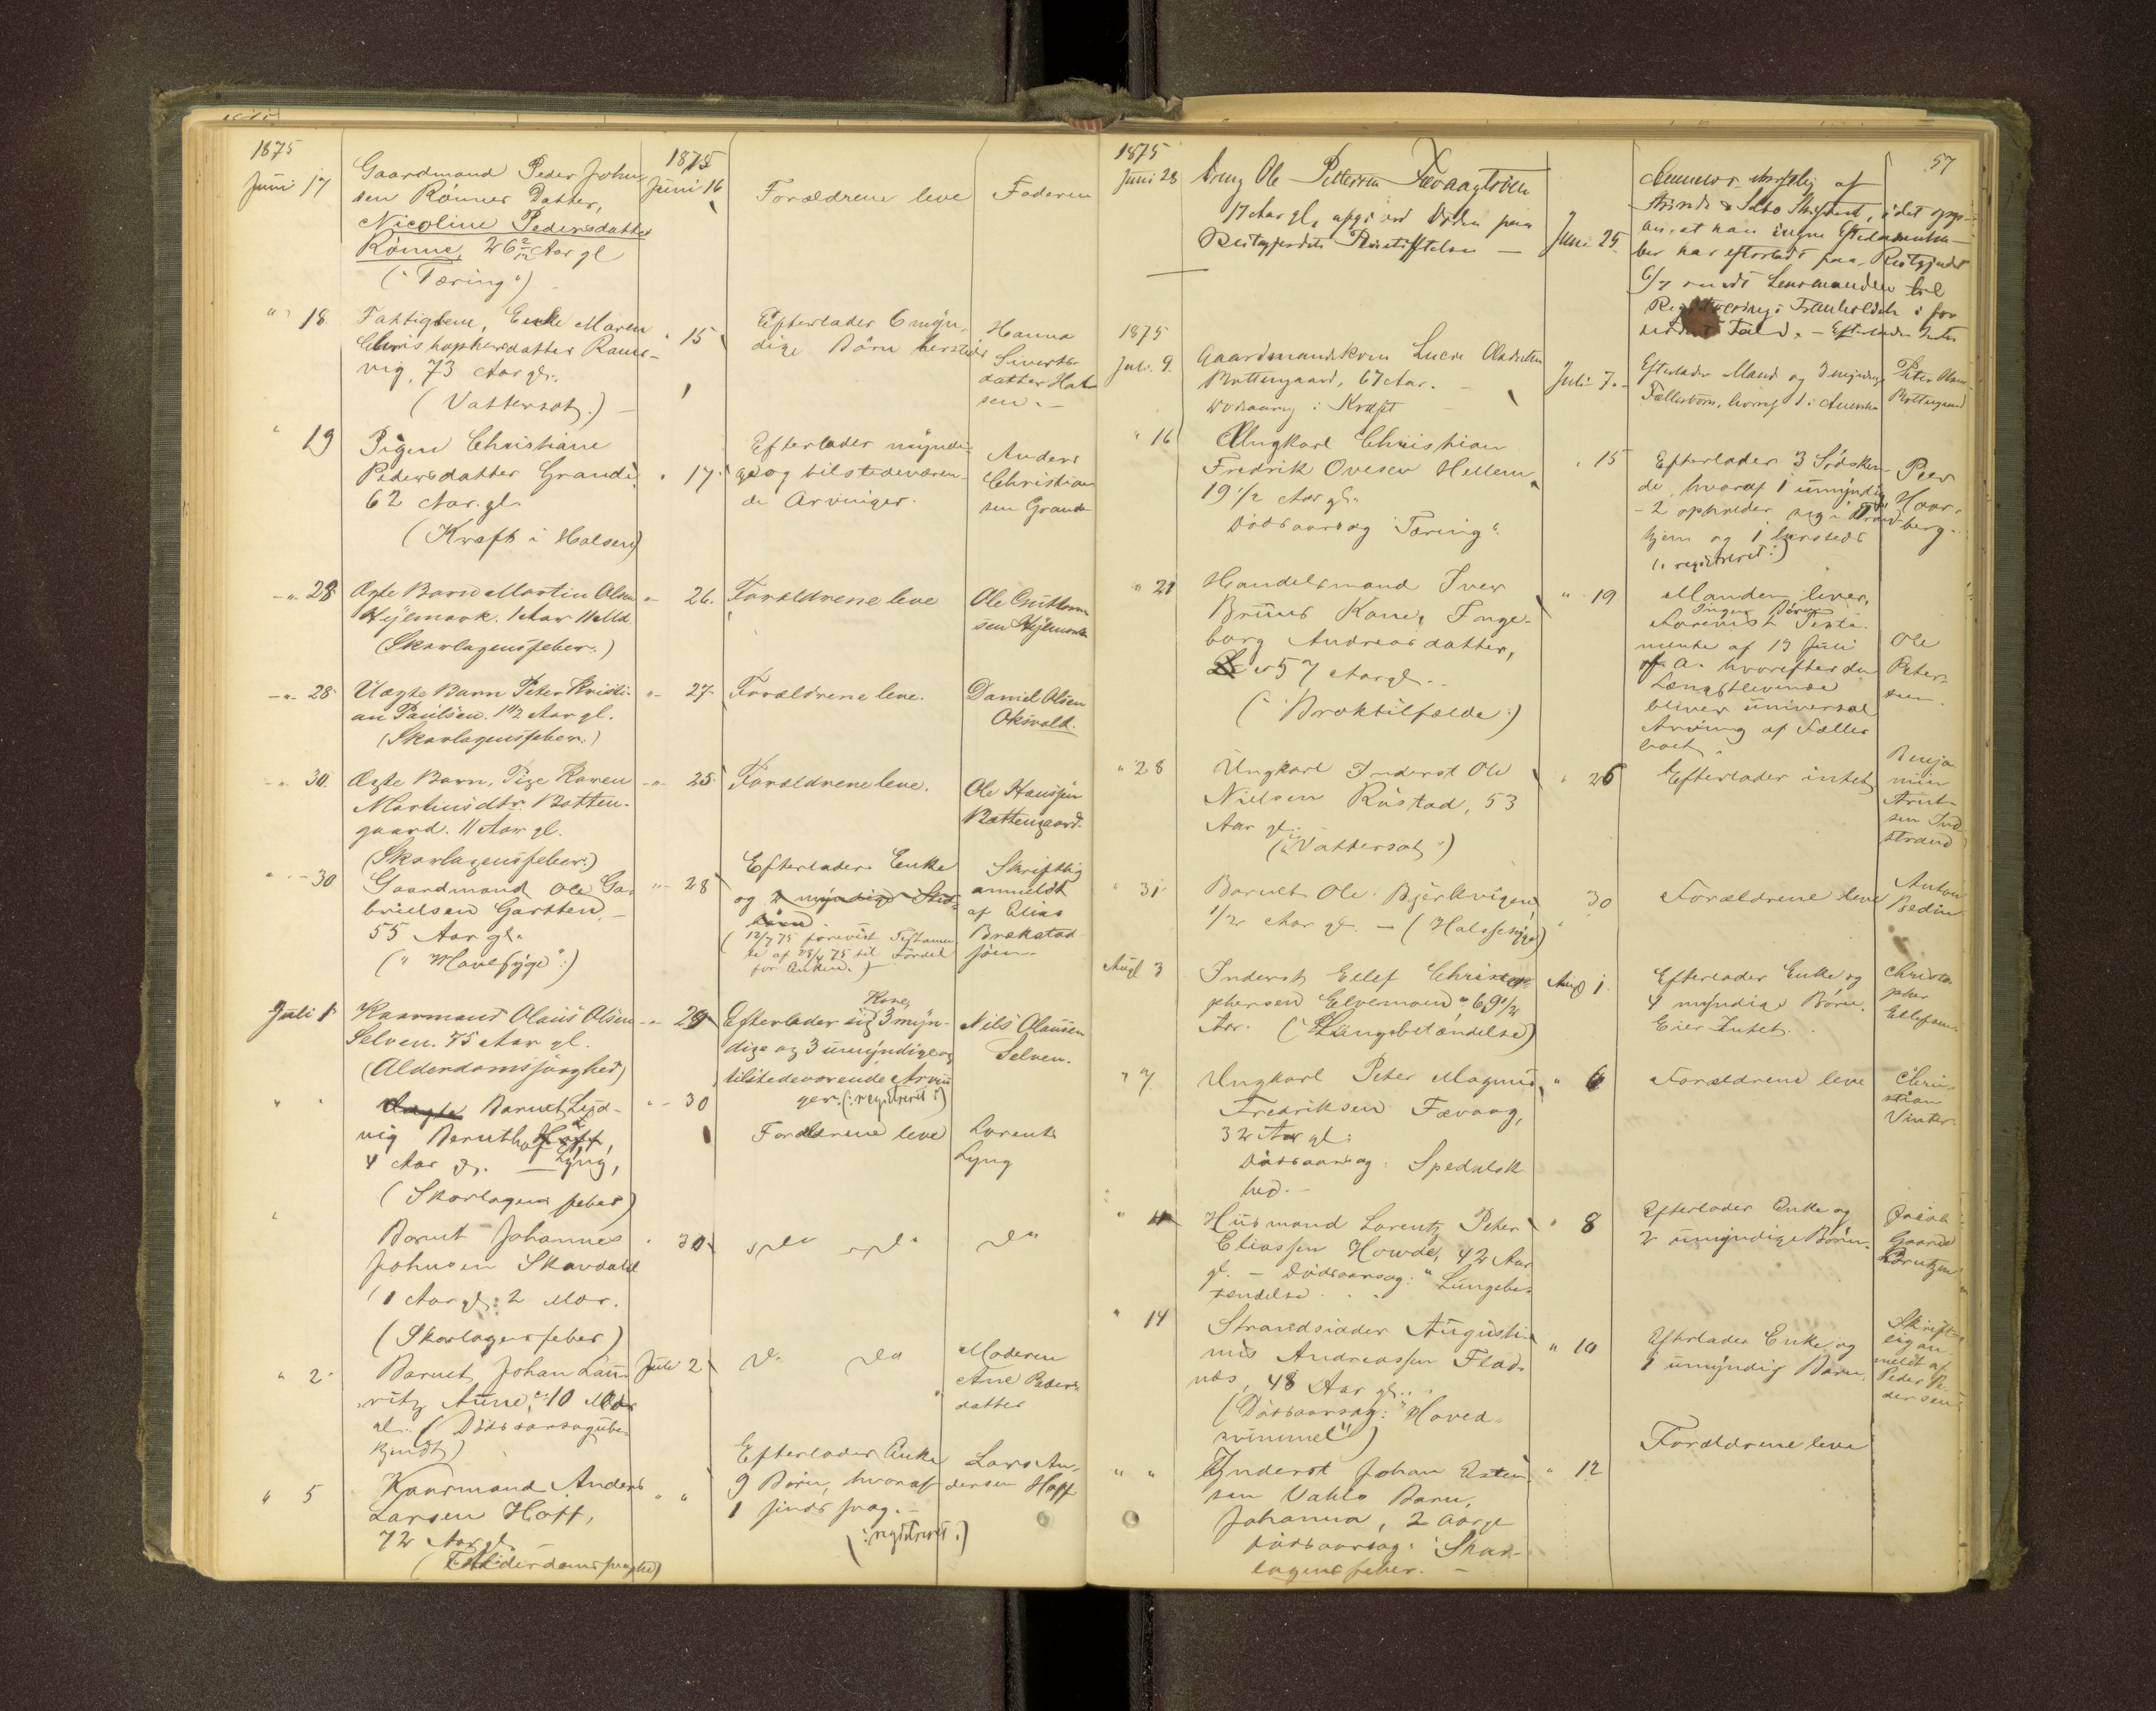 1875
Juni 17
Gaardmand Peder John-
sen Rönnes Datter,
Nicoline Pedersdatter
Rönne, 26 2/12 Aar gl
("Tæring")
1875
Juni 16
Forældrene leve
Faderen
" 18
Fattiglem, Enke Maren
Christophersdatter Rams-
vig, 73 Aar gl.
(Vattersot.) -
" 15
Efterlader 6 myn-
dige Börn hersteds
Hanna
Siverts-
datter Hak-
sen. -
" 19
Pigen Christiane
Pedersdatter Grande
62 Aar gl.
(Kræft i Halsen)
" 17
Efterlader myndi-
ge og tilstedeværen-
de Arvinger.
Anders
Christian
sen Grande
-"- 28
Ægte Barn Martin Olsen
Hÿlmark. 1 Aar 11 Md.
(Skarlagensfeber.)
" 26.
Forældrene leve
Ole
sen Hÿlmark
-"- 28
Uægte Barn Peter Kristi-
an Paulsen. 1 1/2 Aar gl.
(Skarlagensfeber.)
" 27.
Forældrene leve.
Daniel Olsen
Oksvold.
-"- 30.
Ægte Barn, Pige Karen
Martinsdtr. Botten-
gaard. 11 Aar gl.
(Skarlagensfeber.)
-"- 25
Forældrene leve.
Ole Hansen
Bottengaard.
" - 30
Gaardmand Ole Ga-
brielsen Gartten, -
55 Aar gl.
("Mavesyge".)
"- 28
Efterlader Enke
og 2 myndige Sted-
börn.
(12/7 75 forevist Testamen-
te af 28/6 75 til Fordel
for Enken.)
Skriftlig
anmeldt
af Elias
Brækstad
sjöen
Juli 1
Kaarmand Olaus Olsen
Selven. 75 Aar gl.
(Alderdomssvaghed)
-"- 29
Kone,
Efterlader sig 3 myn-
dige og 3 umyndige og
tilstedeværende Arvin
ger. (: registreret :)
Nils Olaussen
Selven.
" "
Uægte Barnet Lud-
vig Bernthof Hoff,
4 Aar gl. - Lyng,
(Skarlagensfeber)
"- 30
Forældrene leve
Lorents
Lyng
"
Barnet Johannes
Johnsen Skavdahl
1 Aar gl. 2 Mdr.
(Skarlagensfeber)
" 30
do do
do
" 2
Barnet Johan Lau-
ritz Aune, 10 Mdr
gl. (Dödsaarsag ube-
kjendt)
Juli 2
do do
Moderen
Ane Peders-
datter
" 5
Kaarmand Anders
Larsen Hoff,
72 Aar gl.
(Alderdomssvaghed)
" "
Efterlader Enke
9 Börn, hvoraf
1 sindssvag. -
(: registreret :)
Lars An-
dersen Hoff
57
1875
Juni 28
Dreng Ole Pettersen Fævaagtröen
17 Aar gl, afgik ved Döden paa
Reitgjerdets Pleiestiftelse -
Juni 25
Anmeldt skriftlig af
Strinde & Selbo Skifteret, idet opgi-
ves, at han ingen
har efterladt paa Reitgjerdet
6/7 sendt Lensmanden til
i for
Fald. - Efterlader Intet
1875
Juli 9.
Gaardmandskone Lucie Olsdatter
Bottengaard, 67 Aar. -
Dödsaarsag: Kræft
Juli 7. -
Efterlader Mand og 3 myndige
Fællesbörn, hvoraf 1 i Amerika
Peter
Bottengaard
" 16
Ungkarl Christian
Fredrik Ovesen Hellem,
19 1/2 Aar gl.
Dödsaarsag "Tæring".
" 15
Efterlader 3 Södsken-
de, hvoraf 1 umyndig
- 2 opholder sig i Trond-
hjem og 1 hersteds
(: registreret :)
Peer
Haar-
berg.
" 21
Handelsmand Iver
Bruns Kone, Inge-
borg Andreasdatter,
57 Aar gl.
("Broktilfælde".)
" 19
Manden lever,
Ingen Börn
Forevist Testa-
mente af 19 Juli
d. A. hvorefter den
Længstlevende
bliver universal
Arving af Fælles
boet.
Ole
Peter-
sen.
" 28
Ungkarl Inderst Ole
Nielsen Röstad, 53
Aar gl.
("Vattersot")
" 26
Efterlader intet
Benja-
min
Arnt-
sen Ind
strand
" 31
Barnet Ole Bjerkvigen,
1/2 Aar gl. - (Halssyge)
" 30
Forældrene leve
Anton
Bedin
Augt 3
Inderst Ellef Christo-
phersen Elvemoen, 69 1/2
Aar. (Lungebetændelse)
Aug 1
Efterlader Enke og
4 myndige Börn.
Eier Intet.
Christo-
pher
Ellefsen
" 7
Ungkarl Peter Magnus
Fredriksen Fævaag,
32 Aar gl.
Dödsaarsag: Spedalsk
hed. -
" 6
Forældrene leve
Chri-
stian
Vinter
" 11
Husmand Lorentz Peter
Eliassen Howde, 42 Aar
gl. - Dödsaarsag: "Lungebe-
tændelse
" 8
Efterlader Enke og
2 umyndige Börn.
Jacob
Gaard
Lorntzen
" 14
Strandsidder Augusti-
nus Andreassen Flad-
nes, 48 Aar gl.
(Dödsaarsag: "Hoved-
svimmel")
" 10
Efterlader Enke og
1 umyndig Barn.
Skrift-
lig an-
meldt af
Peder Pe-
dersen
" "
Inderst Johan Esten-
sen Vahls Barn,
Johanna, 2 Aar gl
Dödsaarsag: Skar-
lagensfeber. -
" 12
Forældrene leve